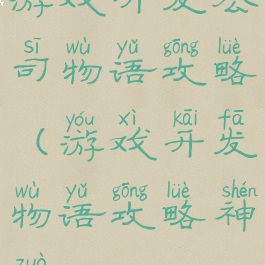 游戏开发公
sī wù yǔ gōng lüè
司物语攻略
yóu xì kāi fā
(游戏开发
wù yǔ gōng lüè shén
物语攻略神
zuò